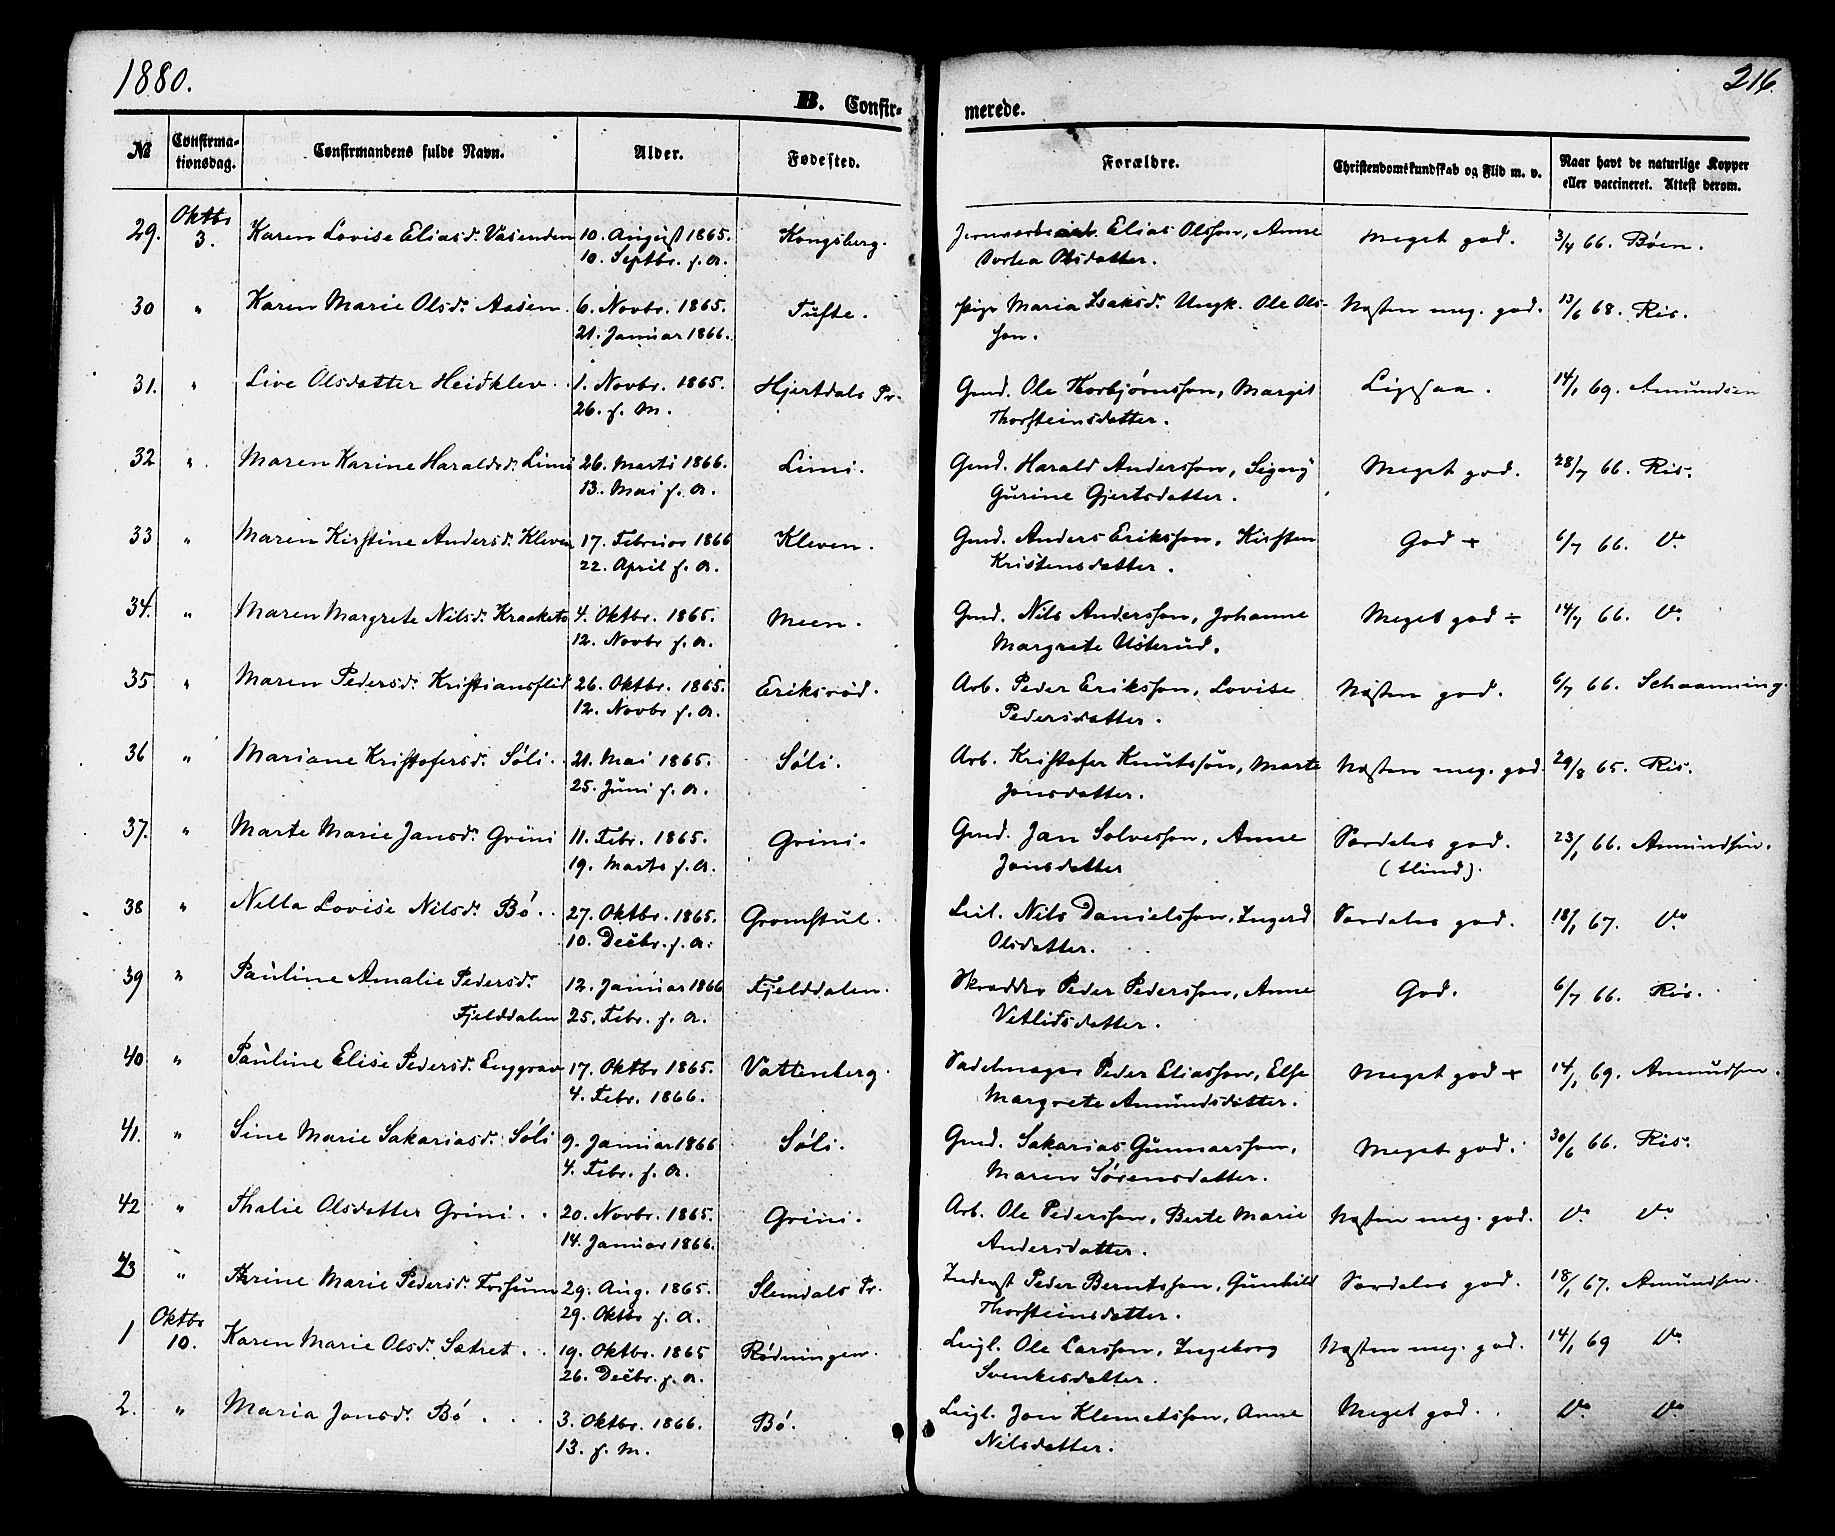 1880.
216.
B. Confir-
merede.
№ Confirma-tionsdag. Confirmandens fulde Navn. Alder. Fødested. Forældre. Christendomskundskab og Flid m. v. Naar havt de naturlige Kopper eller vaccineret. Attest derom.
29. Oktbr 3. Karen Lovise Eliasd. Vasenden 10. August 1865. Kongsberg. Elias Olsson, Anne Meget god. 3/4 66. Bøen.
10. Septbr. f. A. Dortea Olsdatter.
30 " Karen Marie Olsd. Aasen. 6. Novbr. 1865. Tufte. Pige Maria Isaksd. Ungk. Ole Ols- Næsten meg. god. 13/6 68. Ris.
21. Januar 1866. son.
31. " Live Olsdatter Heidklev. 1. Novbr. 1865. Hjertdals Pr. Gmd. Ole Thorbjørnsson, Margit Ligesaa. 14/1 69. Amundsen
26. f. M. Thorsteinsdatter.
32 " Maren Karine Haraldsd. Limi 26. Marts 1866. Limi. Gmd. Harald Andersson, Signy Meget god. 28/7 66. Ris.
13. Mai f. A. Gurine Gjertsdatter.
33 " Maren Kirstine Andersd. Kleven 17. Februar 1866 Kleven. Gmd. Anders Eriksson, Kirsten God + 6/7 66. Do
22. April f. A. Kristensdatter.
34. " Maren Margrete Nilsd. Kraaketo 4. Oktbr. 1865. Meen. Gmd. Nils Andersson, Johanne Meget god ÷ 14/7 66. Do
12. Novbr f. A. Margrete Usterud.
35 " Maren Pedersd. Kristianslid 26. Oktbr. 1865. Eriksrød. Arb. Peder Eriksson, Lovise Næsten god. 6/7 66. Schaanning.
12. Novbr f. A. Pedersdatter.
36 " Mariane Kristofersd. Søli. 21. Mai 1865. Søli. Arb. Kristofer Knutsson, Marte Næsten meg. god. 29/8 65. Ris.
25. Juni f. A. Jonsdatter.
37. " Marte Marie Jansd. Grini 11. Febr. 1865. Grini. Gmd. Jan Solvesson, Anne Særdeles god. 23/1 66. Amundsen.
19. Marts f. A. Jonsdatter (blind).
38 " Nella Lovise Nilsd. Bø. 27. Oktbr. 1865. Gromstul. Leil. Nils Danielsson, Ingerd Særdeles god. 18/1 67. Do
10. Decbr. f. A. Olsdatter.
39 " Pauline Amalie Pedersd. 12. Januar 1866 Fjelddalen. Skrædder Peder Pedersson, Anne God. 6/7 66. Ris.
Fjelddalen 25. Febr. f. A. Vetlidsdatter.
40 " Pauline Elise Pedersd. Enggrav 17. Oktbr 1865. Vattenberg. Sadelmager Peder Eliasson, Else Meget god + 14/1 69. Amundsen.
4. Febr. 1866. Margrete Amundsdatter.
41. " Sine Marie Sakariasd. Søli 9. Januar 1866 Søli. Gmd. Sakarias Gunnarsson, Meget god. 30/6 66. Ris.
4. Febr. f. A. Maren Sørensdatter.
42 " Thalie Olsdatter Grini. 20. Novbr. 1865. Grini. Arb. Ole Pedersson, Berte Marie Næsten meg. god. Do Do
14. Januar 1866. Andersdatter.
43 " Trine Marie Pedersd. Fossum 29. Aug. 1865. Slemdals Pr. Inderst Peder Berntsson, Gunhild Særdeles god. 18/1 67. Amundsen.
29. Oktbr f. A. Thorsteinsdatter.
1 Oktbr 10. Karen Marie Olsd. Sætret. 19. Oktbr. 1865 Rødningen. Leigl. Ole Larsson, Ingeborg Næsten meg. god. 14/1 69 Do
26. Decbr. f. A. Svenkesdatter.
2. " Maria Jonsd. Bø 3. Oktbr. 1866. Bø. Leigl. Jon Klemetsson, Anne Meget god. Do Do
13. f. M. Nilsdatter.